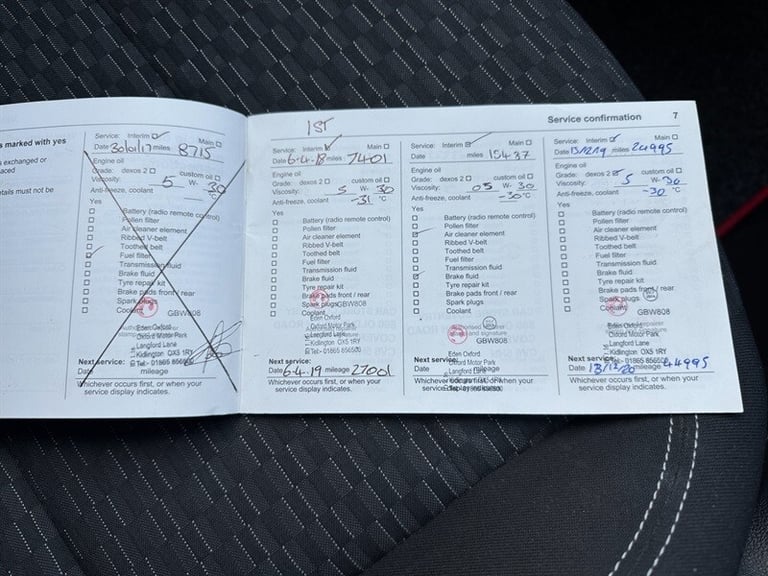 s marked with yes
exchanged or
aced
etails must not be
Service: Interim Main
Date 30/1/17 miles 8715
Engine oil
Grade: dexos 2 custom oil
Viscosity: 5 W- 30
Anti-freeze, coolant °C
Yes
Battery (radio remote control)
Pollen filter
Air cleaner element
Ribbed V-belt
Toothed belt
Fuel filter
Transmission fluid
Brake fluid
Tyre repair kit
Brake pads front / rear
Spark plugs
Coolant GBW808
Eden Oxford
Oxford Motor Park
Langford Lane
Kidlington OX5 1RY
Tel:- 01865 856500
Next service:
Date mileage
Whichever occurs first, or when your
service display indicates.
1ST
Service: Interim Main
Date 6-4-18 miles 7401
Engine oil
Grade: dexos 2 custom oil
Viscosity: 5 W- 30
Anti-freeze, coolant -31 °C
Yes
Battery (radio remote control)
Pollen filter
Air cleaner element
Ribbed V-belt
Toothed belt
Fuel filter
Transmission fluid
Brake fluid
Tyre repair kit
Brake pads front / rear
Spark plugs GBW808
Coolant
Eden Oxford
Oxford Motor Park
Langford Lane
Kidlington OX5 1RY
Tel:- 01865 856500
Next service:
Date 6.4.19 mileage 27001
Whichever occurs first, or when your
service display indicates.
Service confirmation 7
Service: Interim Main
Date miles 15437
Engine oil
Grade: dexos 2 custom oil
Viscosity: 05 W- 30
Anti-freeze, coolant -30 °C
Yes
Battery (radio remote control)
Pollen filter
Air cleaner element
Ribbed V-belt
Toothed belt
Fuel filter
Transmission fluid
Brake fluid
Tyre repair kit
Brake pads front / rear
Spark plugs
Coolant
GBW808
Eden Oxford
Oxford Motor Park
Langford Lane
Next service:
Date mileage
Whichever occurs first, or when your
service display indicates.
Service: Interim Main
Date 13/12/19 miles 24995
Engine oil
Grade: dexos 2 custom oil
Viscosity: 5 W- 30
Anti-freeze, coolant -30 °C
Yes
Battery (radio remote control)
Pollen filter
Air cleaner element
Ribbed V-belt
Toothed belt
Fuel filter
Transmission fluid
Brake fluid
Tyre repair kit
Brake pads front / rear
Spark plugs
Coolant GBW808
Eden Oxford
Oxford Motor Park
Langford Lane
Kidlington OX5 1RY
Tel:- 01865 856500
Next service:
Date 13/12/20 mileage 44995
Whichever occurs first, or when your
service display indicates.